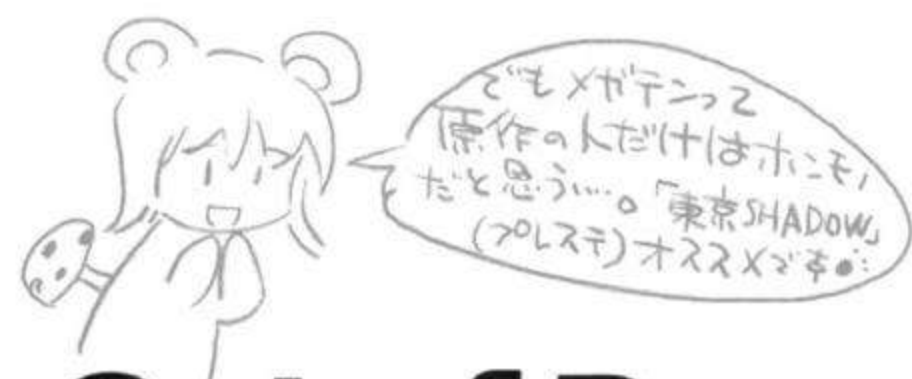 でもメガテンって
原作の人だけはホンモノ
だと思う…。「東京SHADOW」
(プレステ)オススメです